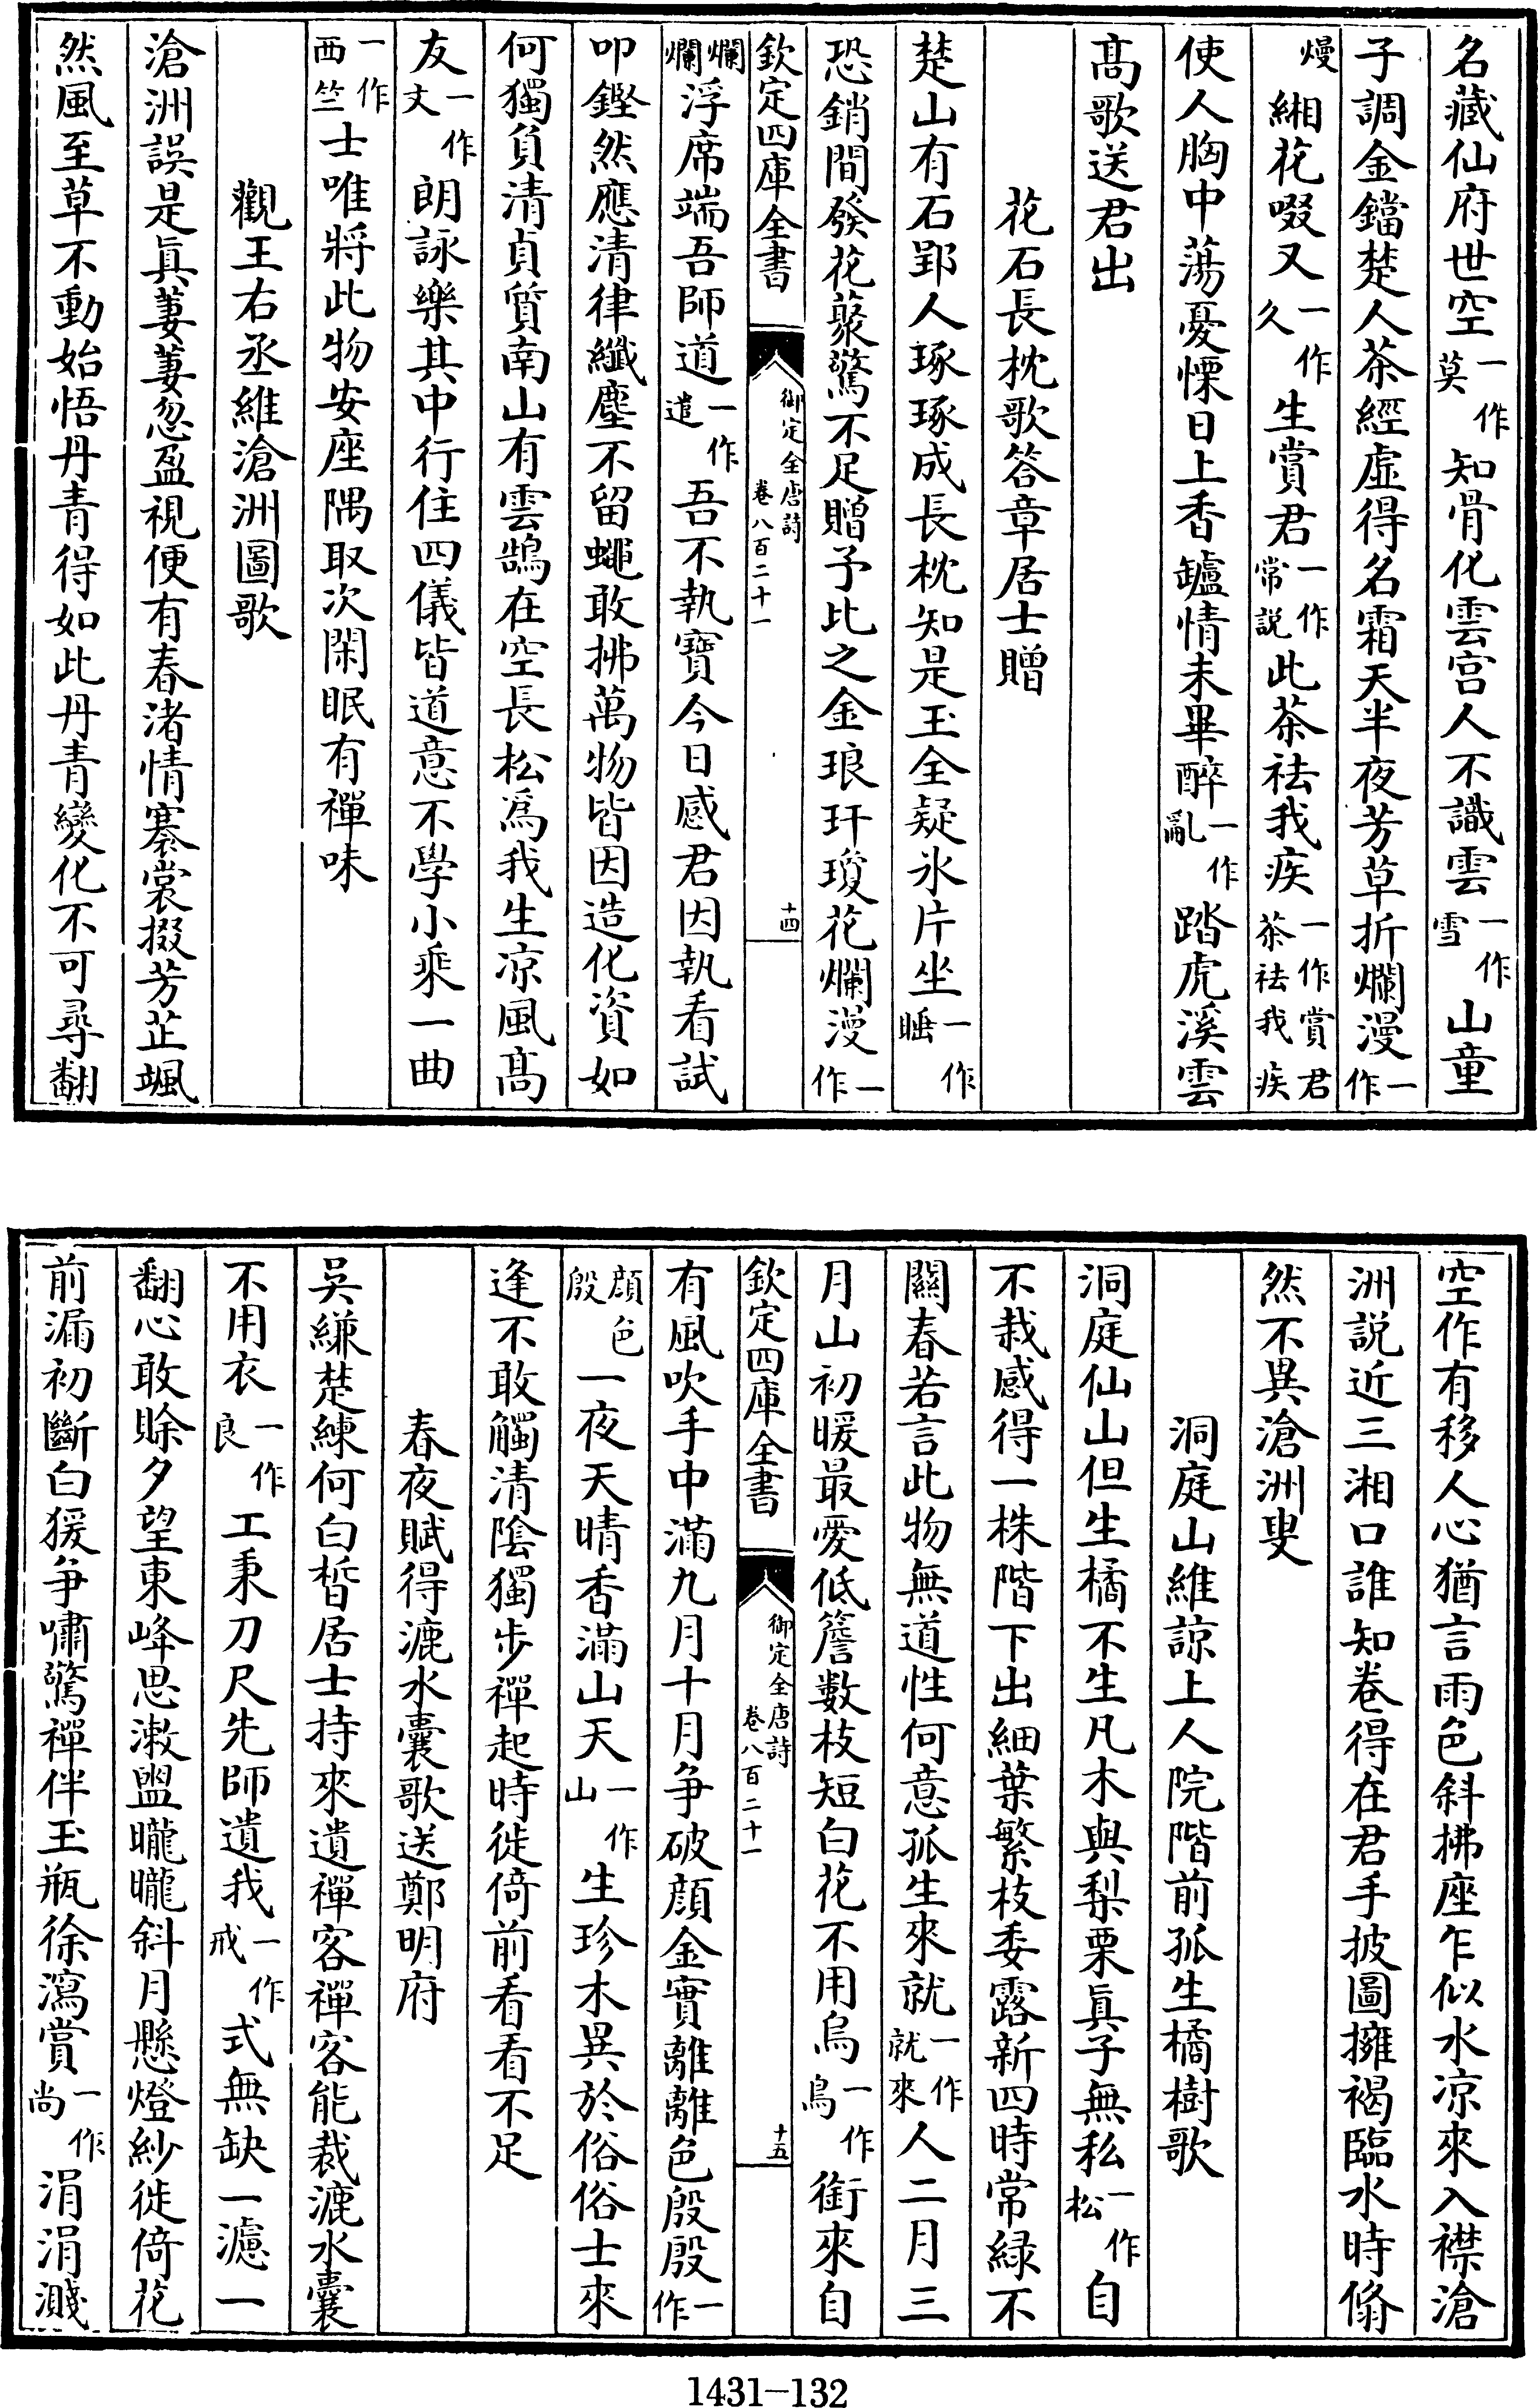 名藏仙府世空一作莫知骨化雲宫人不識雲一作雪山童
子調金鐺楚人茶經虚得名霜天半夜芳草折爛漫一作
熳緗花啜又一作久生賞君一作常説此茶祛我疾一作賞君茶祛我疾
使人胸中蕩憂慄日上香鑪情未畢醉一作亂踏虎溪雲
髙歌送君出
花石長枕歌答章居士贈
楚山有石郢人琢琢成長枕知是玉全疑氷片坐一作睡
恐銷間發花藂驚不足贈予比之金琅玕瓊花爛漫一作
欽定四庫全書
御定全唐詩
卷八百二十一
十四
爛爛浮席端吾師道一作遣吾不執寳今日感君因執看試
叩鏗然應清律纖塵不留蠅敢拂萬物皆因造化資如
何獨負清貞質南山有雲鵠在空長松爲我生凉風髙
友一作丈朗詠樂其中行住四儀皆道意不學小乘一曲
一作西竺士唯將此物安座隅取次閑眠有禪味
觀王右丞維滄洲圖歌
滄洲誤是真萋萋忽盈視便有春渚情褰裳掇芳芷颯
然風至草不動始悟丹青得如此丹青變化不可尋翻
空作有移人心猶言雨色斜拂座乍似水凉來入襟滄
洲説近三湘口誰知卷得在君手披圖擁褐臨水時翛
然不異滄洲叟
洞庭山維諒上人院階前孤生橘樹歌
洞庭仙山但生橘不生凡木與梨栗真子無私一作松自
不栽感得一株階下出細葉繁枝委露新四時常緑不
關春若言此物無道性何意孤生來就一作就來人二月三
月山初暖最愛低簷數枝短白花不用烏一作鳥銜來自
欽定四庫全書
御定全唐詩
卷八百二十一
十五
有風吹手中滿九月十月争破顔金實離離色殷殷一作
顔色殷一夜天晴香滿山天一作山生珍木異於俗俗士來
逢不敢觸清陰獨步禪起時徙倚前看看不足
春夜賦得漉水囊歌送鄭明府
吳縑楚練何白晳居士持來遺禪客禪客能裁漉水囊
不用衣一作良工秉刀尺先師遺我一作戒式無缺一濾一
翻心敢賒夕望東峰思漱盥曨曨斜月懸燈紗徙倚花
前漏初斷白猨争嘯驚禪伴玉瓶徐瀉賞一作尚涓涓濺
1431-132